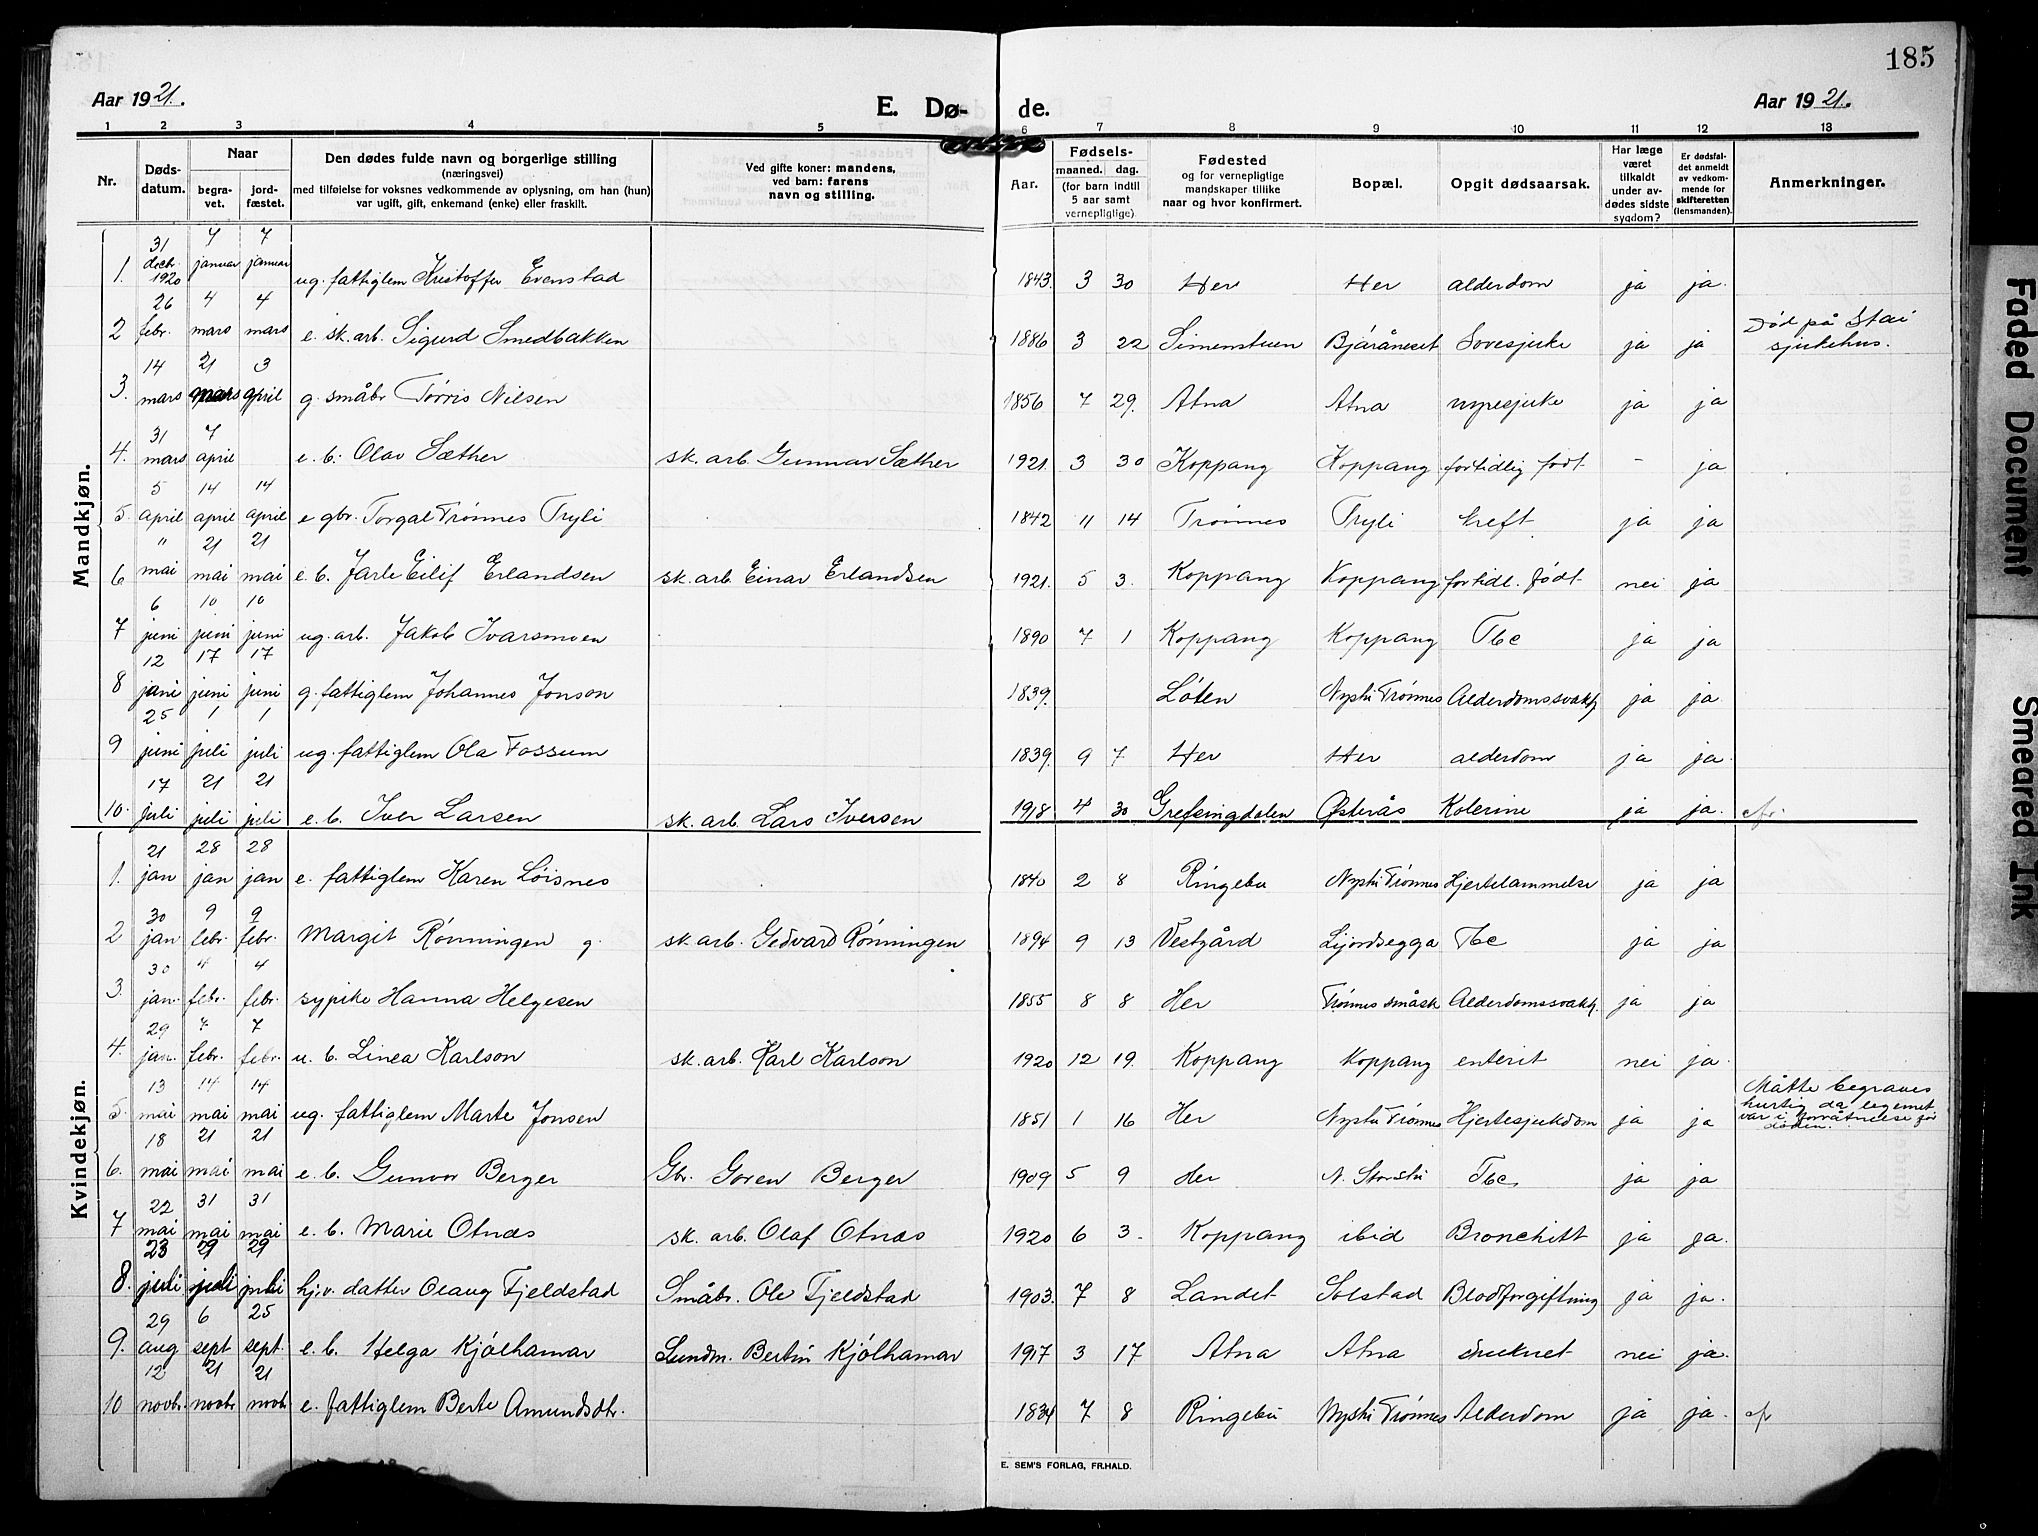 185
Aar 1921.
E. Dø- de.
Aar 1921.
1 2 3 4 5 6 7 8 9 10 11 12 13
Nr.
Døds-
datum.
Naar
begra-
vet.
jord-
fæstet.
Den dødes fulde navn og borgerlige stilling
(næringsvei)
med tilføielse for voksnes vedkommende av oplysning, om han (hun)
var ugift, gift, enkemand (enke) eller fraskilt.
Ved gifte koner: mandens,
ved barn: farens
navn og stilling.
Aar.
Fødsels-
maaned. dag.
(for barn indtil
5 aar samt
vernepligtige)
Fødested
og for vernepligtige
mandskaper tillike
naar og hvor konfirmert.
Bopæl.
Opgit dødsaarsak.
Har læge
været
tilkaldt
under av-
dødes sidste
sygdom?
Er dødsfal-
det anmeldt
av vedkom-
mende for
skifteretten
(lensmanden).
Anmerkninger.
Mandkjøn.
1. 31 decbr. 1920 7 januar 7 januar ug. fattiglem Kristoffer Evenstad 1843. 3 30 Her Her alderdom ja ja.
2 26 febr. 4 mars 4 mars e. sk. arb. Sigurd Smedbakken 1886 3 22 Simenstuen Bjøråneset Sovesjuke ja ja Død på Stai sjukehus.
3. 14 mars 21 mars 3 april g. småbr Tørris Nilsen 1856 7 29. Atna Atna nyresjuke ja ja
4. 31 mars 7 april e. b. Olav Sæther sk. arb. Gunnar Sæther 1921. 3 30 Koppang Koppang fortidlig født - ja
5. 5 april 14 april 14 april e gbr. Torgal Trønnes Tryli 1842 11 14 Trønnes Tryli kreft ja ja
6 " mai 21 mai 21 mai e. b. Jarle Eilif Erlandsen sk. arb. Einar Erlandsen 1921. 5 3. Koppang Koppang fortidl. født nei ja
7 6 juni 10 juni 10 juni ug. arb. Jakob Ivarsmoen 1890 7 1 Koppang Koppang Tbc ja ja
8 12 juni 17 juni 17 juni g. fattiglem Johannes Jonson 1839. Løten Nystu Trønnes Alderdomssvakh. ja ja
9 25 juni 1 juli 1 juli ug. fattiglem Ola Fossum 1839. 9 7. Her Her alderdom ja ja
10. 17 juli 21 juli 21 juli e. b. Iver Larsen sk. arb. Lars Iversen 1918. 4 30 Grefsingdalen Østerås Kolerine ja ja. cfr.
Kvindekjøn.
1. 21 jan 28 jan 28 jan e. fattiglem Karen Løisnes 1840 2 8 Ringebu Nystu Trønnes Hjertelammelse ja ja
2 30 jan 9 febr. 9 febr. Margit Rønningen g. sk. arb. Gedvard Rønningen 1894 9 13 Vestgård Lijordsegga Tbc ja ja
3. 30 jan. 4 febr. 4 febr. sypike Hanna Helgesen 1855 8 8 Her Trønnes småsk Alderdomssvakh. ja ja
4. 29 jan. 7 febr. 7 febr. u. b. Linea Karlson sk. arb. Karl Karlson 1920 12 19. Koppang Koppang enterit nei ja
5. 13 mai 14 mai 14 mai ug. fattiglem Marte Jonsen 1851 1 16 Her Nystu Trønnes Hjertesjukdom ja ja Måtte begraves hurtig da legemet var i forråtnelse før døden.
6. 18 mai 21 mai 21 mai e. b. Gunvor Berger Gbr. Goren Berger 1909 5 9 Her N. Storstu Tbc ja ja
7 22 mai 31 mai 31 mai e. b. Marie Otnæs sk. arb. Olaf Otnæs 1920 6 3. Koppang ibid Bronchitt ja ja.
8. 23 juli 29 juli 29 juli hj.v. datter Olaug Fjeldstad Småbr. Ole Fjeldstad 1903. 7 8 Landet Solstad Blodforgiftning ja ja.
9. 29 aug 6 sept 25 sept. e. b. Helga Kjølhamar Bertin Kjølhamar 1917 3 17 Atna Atna druknet nei ja.
10 12 novbr. 21 novbr 21 novbr e. fattiglem Berte Amundsdtr. 1834 7 8 Ringebu Nystu Trønnes Alderdom ja ja. cfr
E. SEM'S FORLAG, FR.HALD.
Faded Document
Smeared Ink